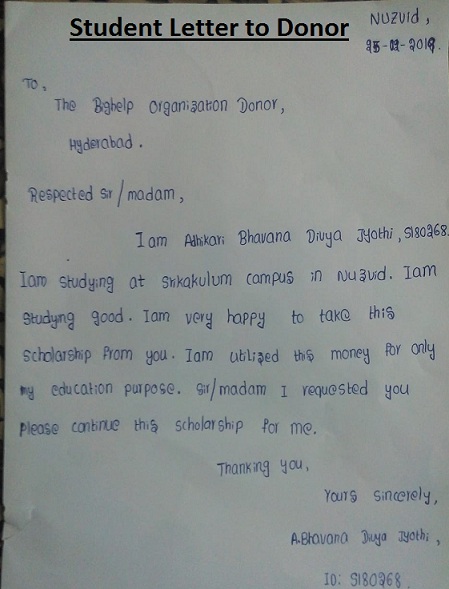 Student Letter to Donor
Nuzvid,
To,
The Bghelp Organization Donor,
Hyderabad.
Respected Sir/madam,
I am Adhikari Bhavana Divya Jyothi, S180268.
Iam studying at Srikakulam campus in Nuzvid. Iam
studying good. Iam very happy to take this
scholarship from you. Iam utilized this money for only
my education purpose. Sir/madam I requested you
please continue this scholarship for me.
Thanking you,
Yours sincerely,
A.Bhavana Divya Jyothi,
ID: S180268.